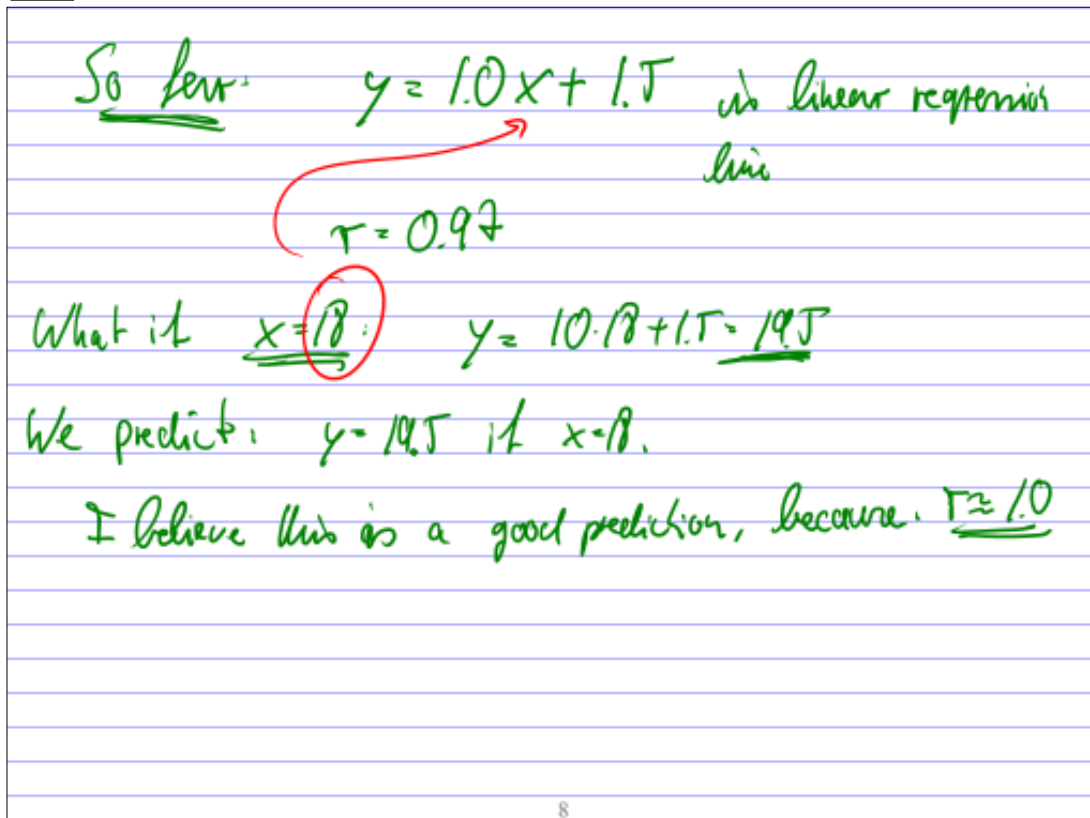 So far: y = 1.0x + 1.5 is linear regression
line
r = 0.97
What if x=18: y = 1.0·18+1.5 = 19.5
We predict: y = 19.5 if x=18.
I believe this is a good prediction, because. r≈1.0
8